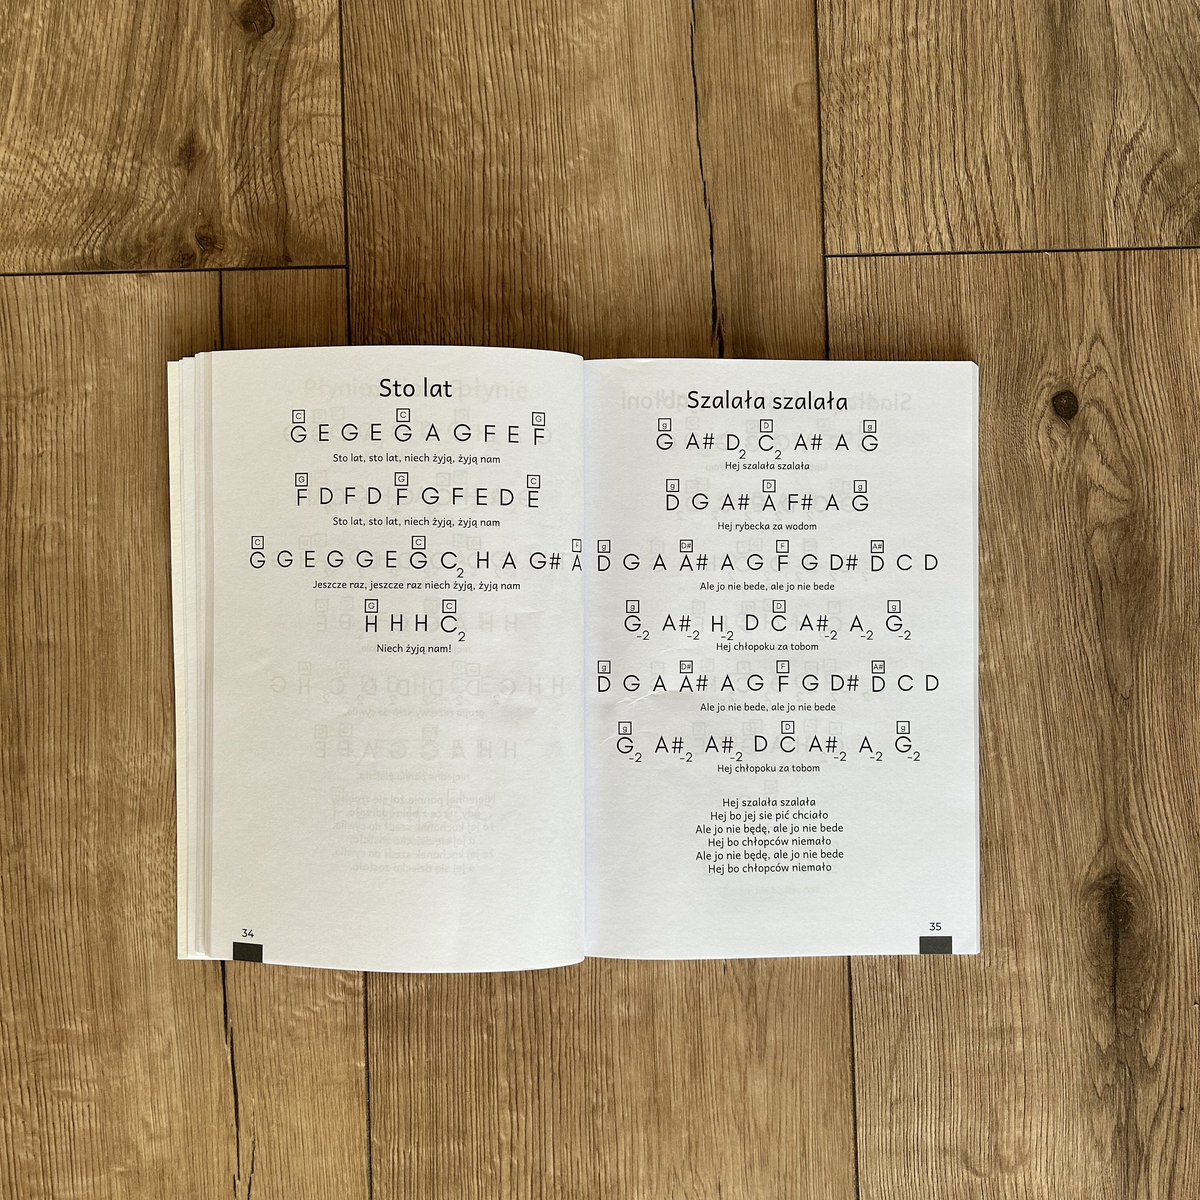 Sto lat
C C G
G E G E G A G F E F
Sto lat, sto lat, niech żyją, żyją nam
G G C
F D F D F G F E D E
Sto lat, sto lat, niech żyją, żyją nam
C C F
G G E G G E G C2 H A G# A
Jeszcze raz, jeszcze raz niech żyją, żyją nam
G C
H H H C2
Niech żyją nam!
34
Szalała szalała
g D g
G A# D2 C2 A# A G
Hej szalała szalała
g D g
D G A# A F# A G
Hej rybecka za wodom
g D# F A#
D G A A# A G F G D# D C D
Ale jo nie bede, ale jo nie bede
g D g
G-2 A#-2 H-2 D C A#-2 A-2 G-2
Hej chłopoku za tobom
g D# F A#
D G A A# A G F G D# D C D
Ale jo nie bede, ale jo nie bede
g D g
G-2 A#-2 A#-2 D C A#-2 A-2 G-2
Hej chłopoku za tobom
Hej szalała szalała
Hej bo jej sie pić chciało
Ale jo nie będę, ale jo nie bede
Hej bo chłopców niemało
Ale jo nie będę, ale jo nie bede
Hej bo chłopców niemało
35